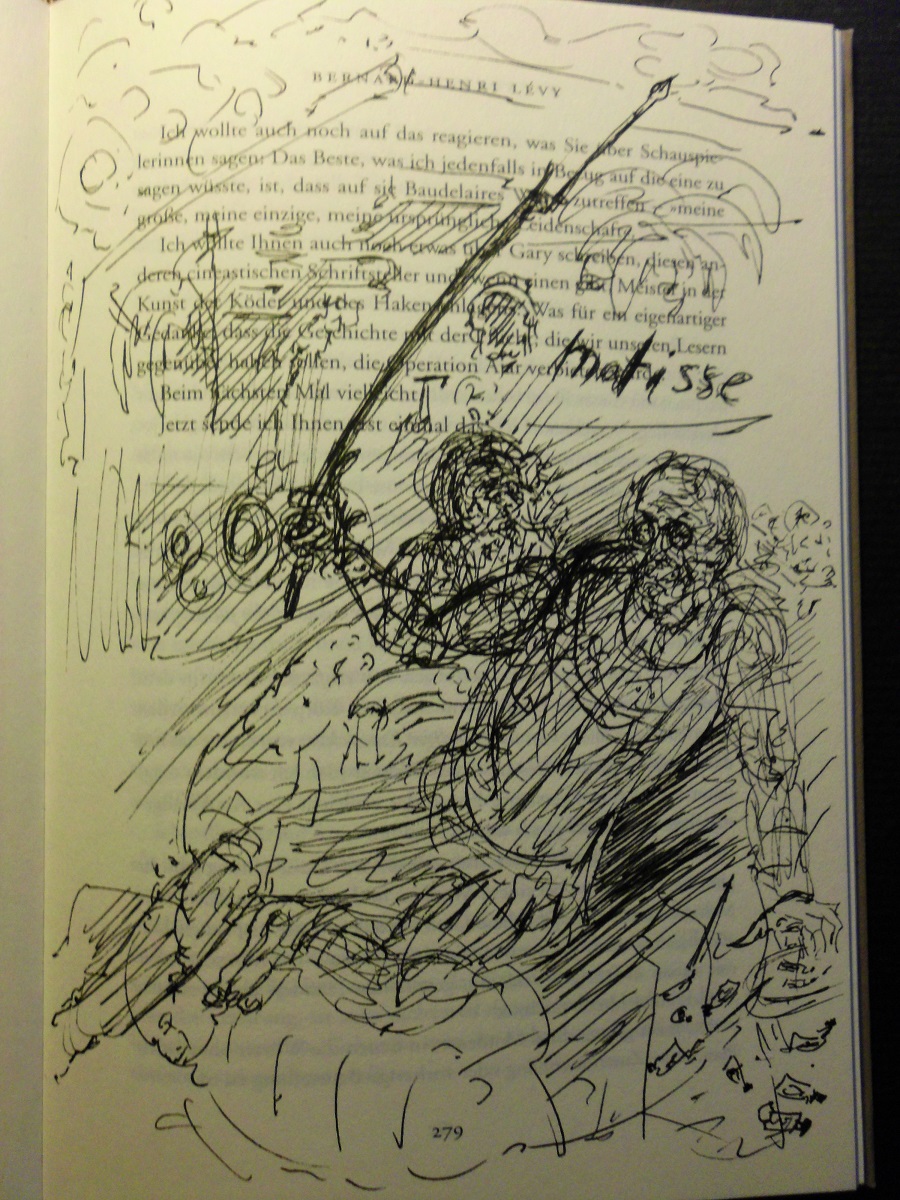 BERNARD-HENRI LÉVY
Ich wollte auch noch auf das reagieren, was Sie über Schauspie-
lerinnen sagen: Das Beste, was ich jedenfalls in Bezug auf die eine zu
sagen wüsste, ist, dass auf sie Baudelaires zutreffen: »meine
große, meine einzige, meine ursprüngliche Leidenschaft«.
Ich wollte Ihnen auch noch etwas über Gary schreiben, diesen an-
deren cineastischen Schriftsteller und, wenn einen gibt, Meister in der
Kunst der Köder und des Hakenschlagens. Was für ein eigenartiger
Gedanke, dass die Geschichte mit der die wir unseren Lesern
gegenüber haben sollen, die Operation
matisse
Beim nächsten Mal vielleicht.
Jetzt sende ich Ihnen erst einmal das.
279